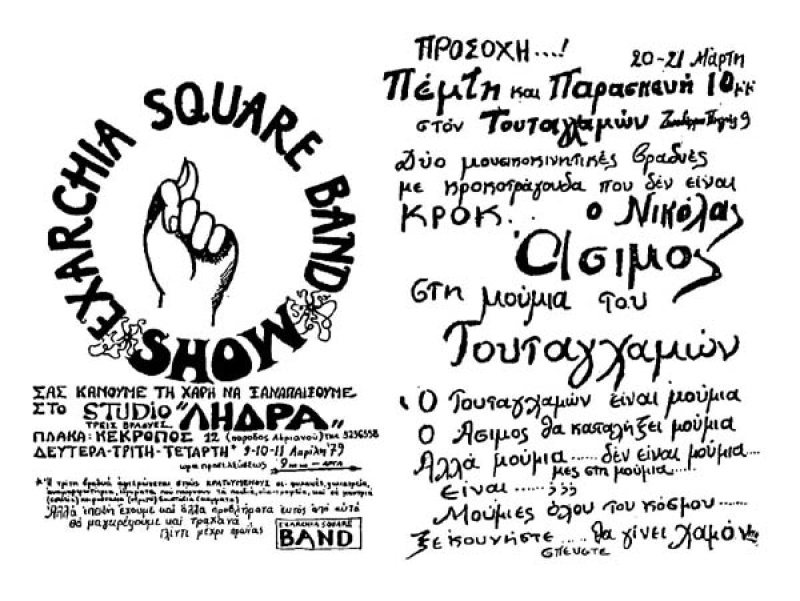 EXARCHIA SQUARE BAND
SHOW
ΣΑΣ ΚΑΝΟΥΜΕ ΤΗ ΧΑΡΗ ΝΑ ΞΑΝΑΠΑΙΞΟΥΜΕ
ΣΤΟ STUDIO "ΛΗΔΡΑ"
ΤΡΕΙΣ ΒΡΑΔΥΕΣ
ΠΛΑΚΑ: ΚΕΚΡΟΠΟΣ 12 (παροδος Αδριανού) τηλ 3236558
ΔΕΥΤΕΡΑ-ΤΡΙΤΗ-ΤΕΤΑΡΤΗ 9-10-11 Απρίλη '79
ωρα προσελεύσεως 9
* Η τρίτη βραδυά αφιερώνεται στούς ΚΡΑΤΟΥΜΕΝΟΥΣ σε φυλακές, ψυχιατρεία,
Αλλά επειδή έχουμε και άλλα προβλήματα εκτός από αυτά
θά μαγειρέψουμε και τραχανά
EXARCHIA SQUARE
BAND
ΠΡΟΣΟΧΗ...!
20-21 Μάρτη
Πέμτη και Παρασκευή 10μμ
στόν Τουταγχαμών 9
Δύο μουσικοκινητικές βραδυές
με κροκοτράγουδα που δέν είναι
ΚΡΟΚ... ο Νικόλας
Άσιμος
στη μούμια του
Τουταγχαμών
Ο Τουταγχαμών είναι μούμια
Ο Ασιμος θα καταλήξει μούμια
Αλλά μούμια..... δέν είναι μούμια...
μες στη μούμια....
είναι ..... ;;;
Μούμιες όλου του κόσμου.....
ξεκουνήστε .... θα γίνει χαμόν
σπευστε